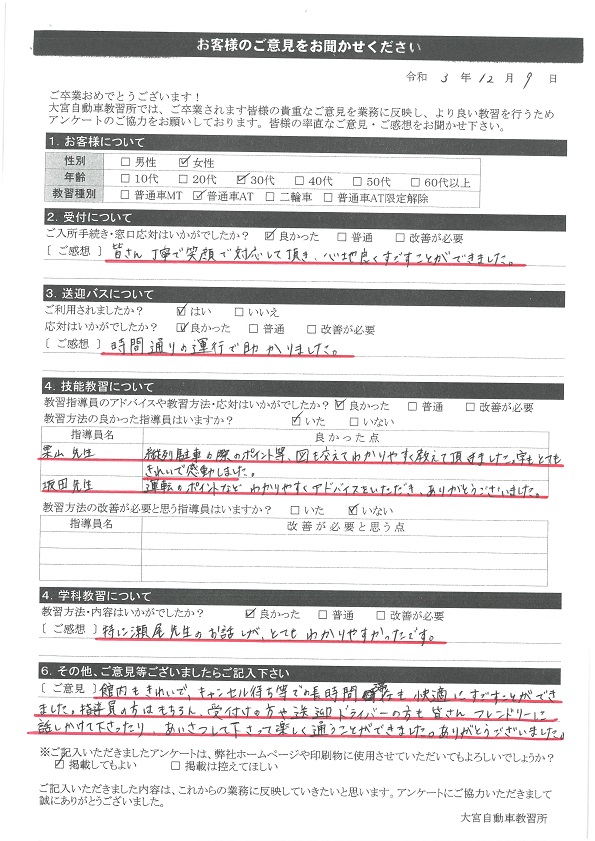 お客様のご意見をお聞かせください
令和 3 年 12 月 9 日
ご卒業おめでとうございます！
大宮自動車教習所では、ご卒業されます皆様の貴重なご意見を業務に反映し、より良い教習を行うため
アンケートのご協力をお願いしております。皆様の率直なご意見・ご感想をお聞かせ下さい。
1. お客様について
性別 □ 男性 ☑ 女性
年齢 □ 10代 □ 20代 ☑ 30代 □ 40代 □ 50代 □ 60代以上
教習種別 □ 普通車MT ☑ 普通車AT □ 二輪車 □ 普通車AT限定解除
2. 受付について
ご入所手続き・窓口応対はいかがでしたか？ ☑ 良かった □ 普通 □ 改善が必要
〔 ご感想 〕皆さん丁寧で笑顔で対応して頂き、心地良くすごすことができました。
3. 送迎バスについて
ご利用されましたか？ ☑ はい □ いいえ
応対はいかがでしたか？ ☑ 良かった □ 普通 □ 改善が必要
〔 ご感想 〕時間通りの運行で助かりました。
4. 技能教習について
教習指導員のアドバイスや教習方法・応対はいかがでしたか？ ☑ 良かった □ 普通 □ 改善が必要
教習方法の良かった指導員はいますか？ ☑ いた □ いない
指導員名 良かった点
栗山先生 縦列駐車の際のポイント等、図を交えてわかりやすく教えて頂きました。字もとても
きれいで感動しました。
坂田先生 運転のポイントなど わかりやすくアドバイスをいただき、ありがとうございました。
教習方法の改善が必要と思う指導員はいますか？ □ いた ☑ いない
指導員名 改善が必要と思う点
4. 学科教習について
教習方法・内容はいかがでしたか？ ☑ 良かった □ 普通 □ 改善が必要
〔 ご感想 〕特に瀬尾先生のお話しが、とても わかりやすかったです。
6. その他、ご意見等ございましたらご記入下さい
〔 ご意見 〕館内もきれいで、キャンセル待ち等での長時間 も 快適にすごすことができ
ました。指導員の方はもちろん、受付けの方や送迎ドライバーの方も皆さん フレンドリーに
話しかけて下さったり、あいさつして下さって楽しく通うことができました。ありがとうございました。
※ご記入いただきましたアンケートは、弊社ホームページや印刷物に使用させていただいてもよろしいでしょうか？
☑ 掲載してもよい □ 掲載は控えてほしい
ご記入いただきました内容は、これからの業務に反映していきたいと思います。アンケートにご協力いただきまして
誠にありがとうございました。
大宮自動車教習所